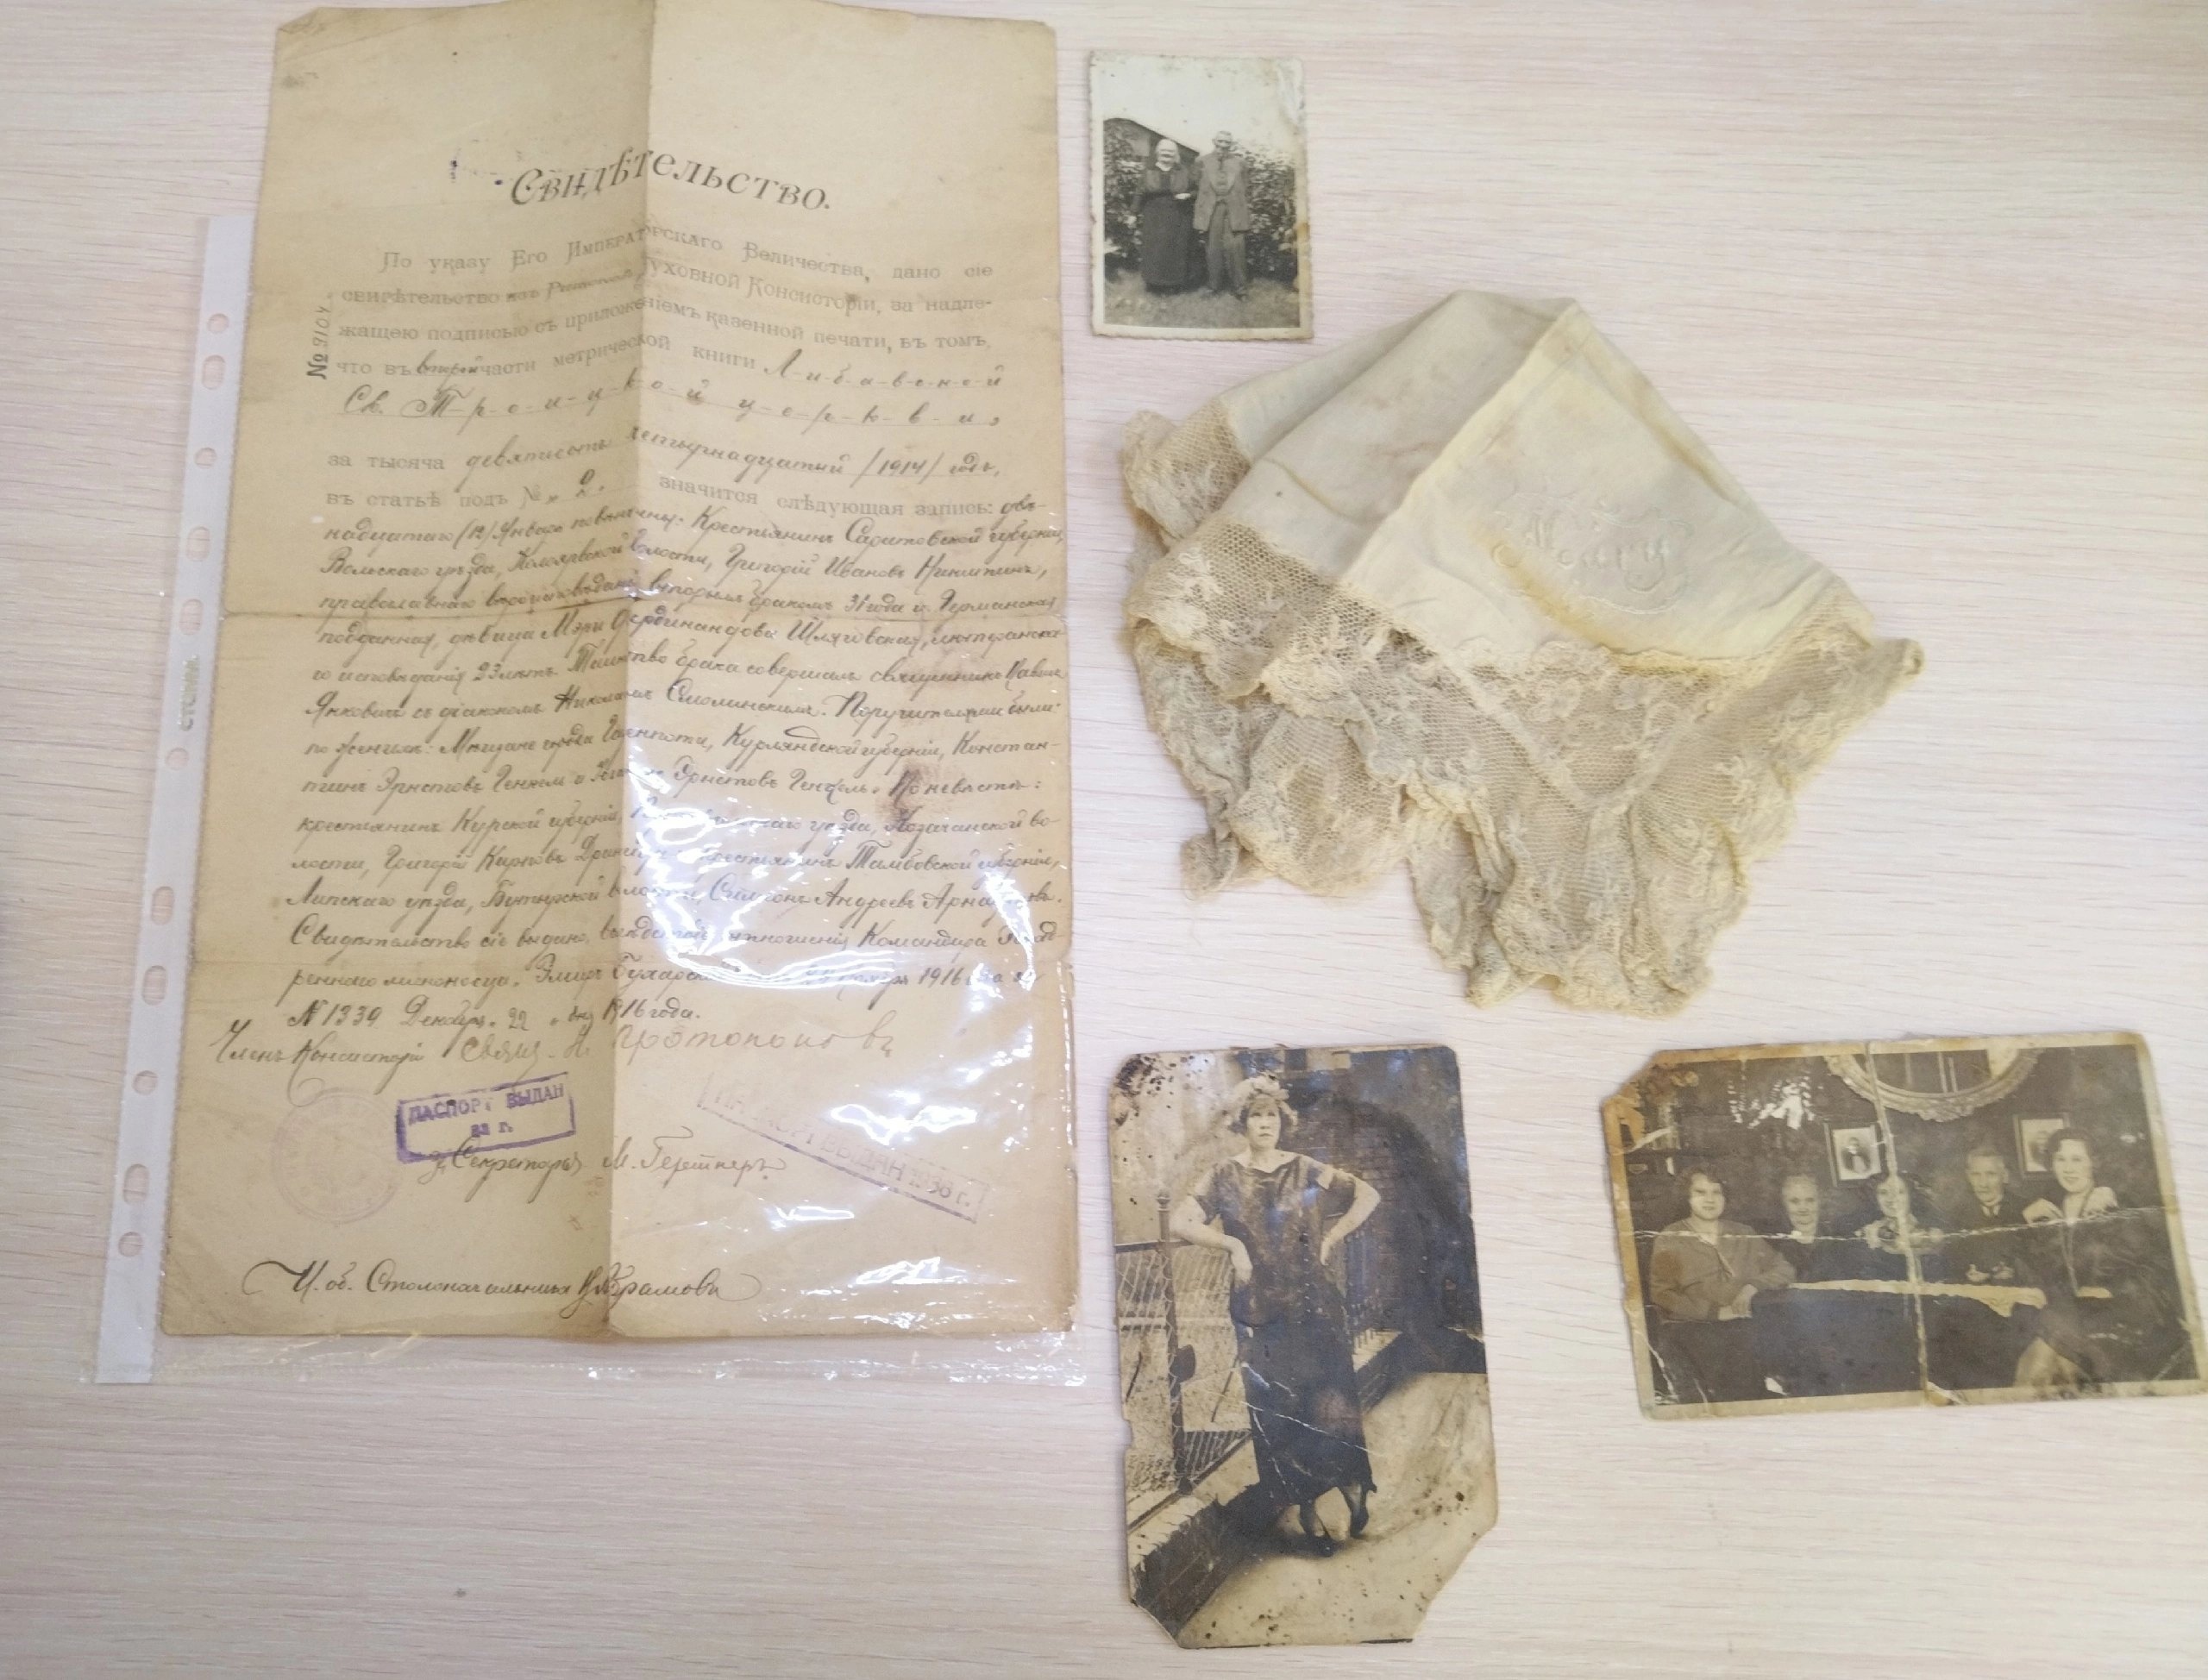 Свидѣтельство.
По указу Его Императорскаго Величества, дано сіе
свидѣтельство изъ Рижской Духовной Консисторіи, за надле-
жащею подписью съ приложеніемъ казенной печати, въ томъ,
что въ второй части метрической книги Л-и-б-а-в-с-к-о-й
Св. Т-р-о-и-ц-к-о-й ц-е-р-к-в-и,
за тысяча девятисотъ четырнадцатый /1914/ годъ,
въ статьѣ подъ № „2. значится слѣдующая запись: две-
надцатаго (12) Января повѣнчаны: Крестьянинъ Саратовской губерніи,
Вольскаго уѣзда, волости, Григорій Ивановъ Никитинъ,
православнаго вѣроисповѣданія, вторымъ бракомъ 31 года и Германская
подданная, дѣвица Мэри Фердинандова Шляговская, лютеранска-
го исповѣданія 23 лѣтъ. Таинство брака совершалъ священникъ Павелъ
Янковичъ съ діакономъ Николаемъ Смолинскимъ. Поручителями были:
по женихѣ: Мѣщане города Газенпота, Курляндской губерніи, Констан-
тинъ Эрнстовъ Генкель и Эрнстовъ Генкель. По невѣстѣ:
крестьянинъ Курской губерніи, уѣзда, Козачанской во-
лости, Григорій Карповъ и крестьянинъ Тамбовской губерніи,
Липскаго уѣзда, Бутырской волости, Симеонъ Андреевъ
Свидѣтельство сіе выдано, вслѣдствіе отношенія Командира Эскад-
реннаго миноносца „Эмиръ Бухарскій 1916 года за
№ 1339 Декабря „22 „ дня 1916 года.
Членъ Консисторіи Свящ. Н. Протопоповъ
ПАСПОРТ ВЫДАН
33 г.
ПАСПОРТ ВЫДАН 1936 г.
Секретарь М.
И. об. Столоначальника Храмовъ
№ 9104
СТЕММ
Мэри